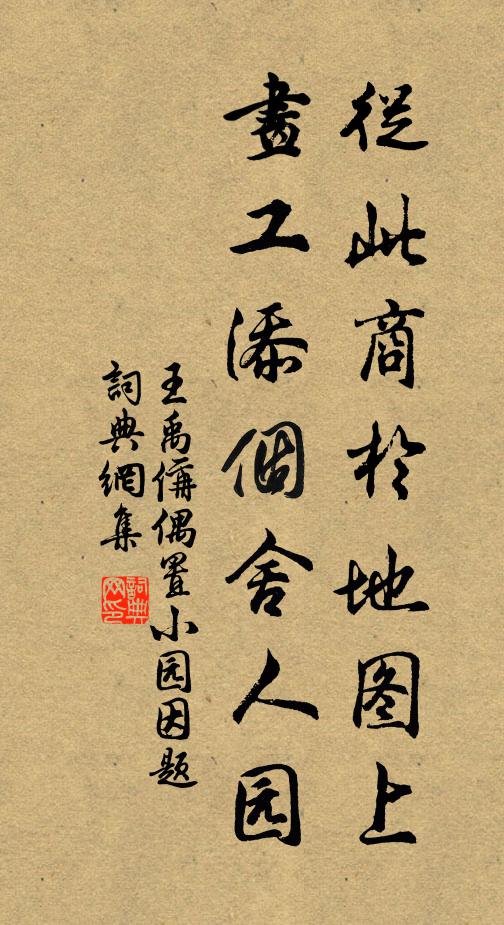 從此商於地图上
畫工添個舍人园
王禹偁偶置小园因题
詞典網集
詞典网印